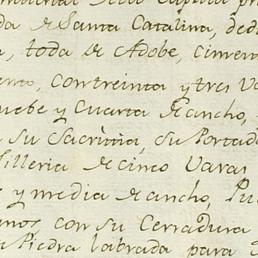 da de Santa Catalina, ded
, toda de Adobe, cimen
ento, con treinta y tres Va
uebe y Cuarta de ancho,
su Sacristia, su Portad
illeria de cinco Varas
y media de ancho, Pu
anos con su Cerradura
Piedra labrada para